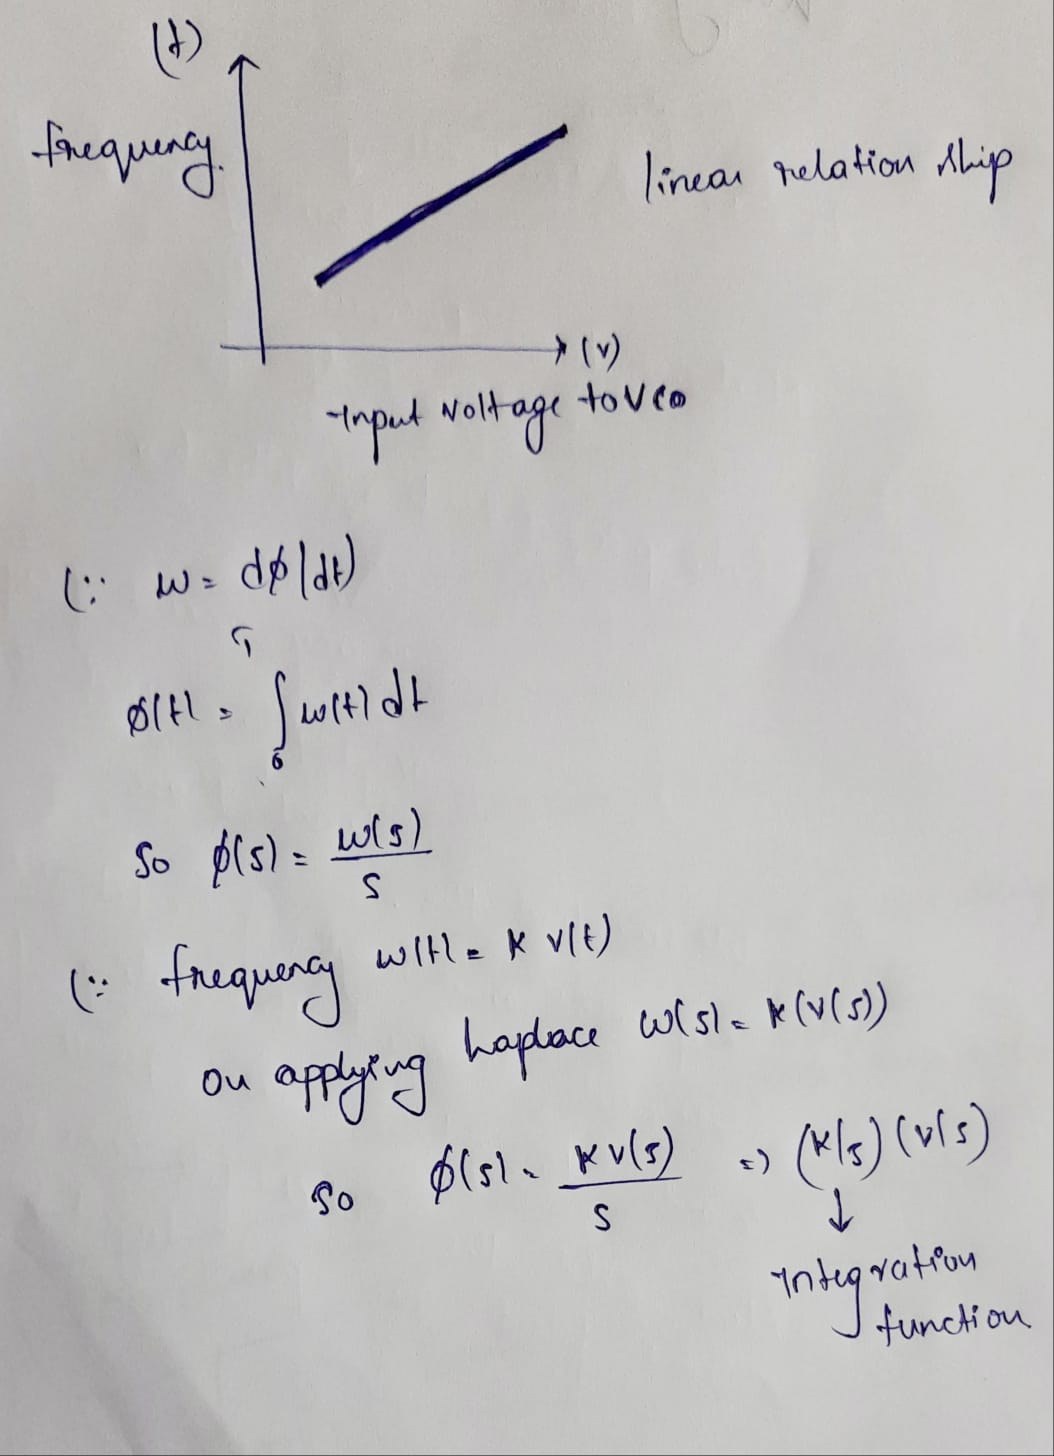 (f)
frequency.
linear relation ship
(v)
Input voltage to VCO
(∵ w = dϕ/dt)
T
ϕ(t) = ∫ w(t) dt
0
So ϕ(s) = w(s)
s
(∵ frequency w(t) = K v(t)
on applying Laplace w(s) = K(v(s))
So ϕ(s) = K v(s) => (K/s) (v(s)
s
↓
Integration
function